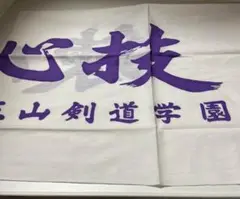 心技
山剣道学園